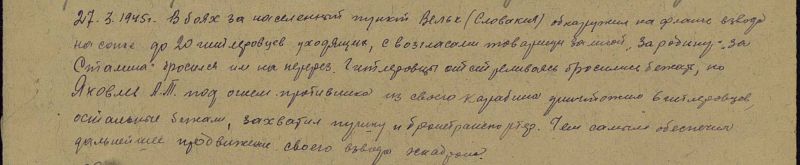 27.3.1945г. В боях за населенный пункт Вельк (Словакия) обнаружил на фланге взвода
на сопке до 20 гитлеровцев уходящих, с возгласами товарищи за мной, за родину - за
Сталина бросился им на перерез. Гитлеровцы отстреливаясь бросились бежать, но
Яковлев А.М. под огнем противника из своего карабина уничтожил 6 гитлеровцев,
остальные бежали, захватил пушку и бронетранспортер. Тем самым обеспечил
дальнейшее продвижение своего взвода эскадрона.